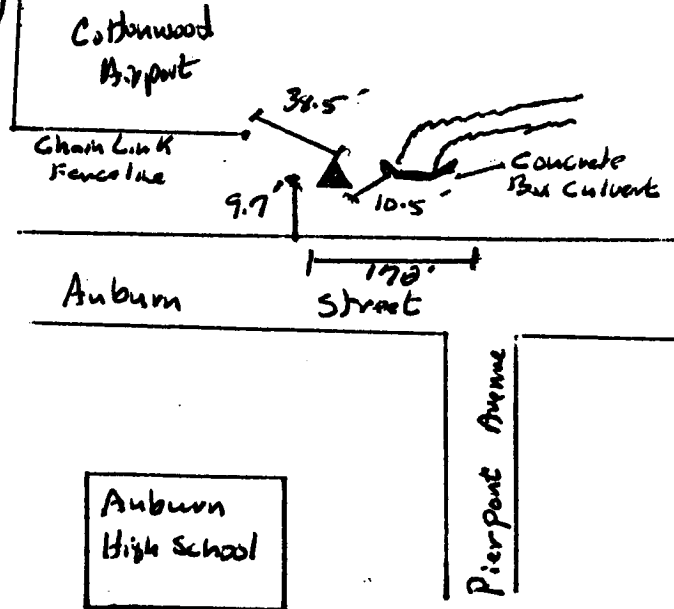 Cottonwood
Airport
38.5'
Chain Link
Fenceline
9.7'
10.5'
Concrete
Box Culvert
Auburn Street
Pierpont Avenue
Auburn
High School